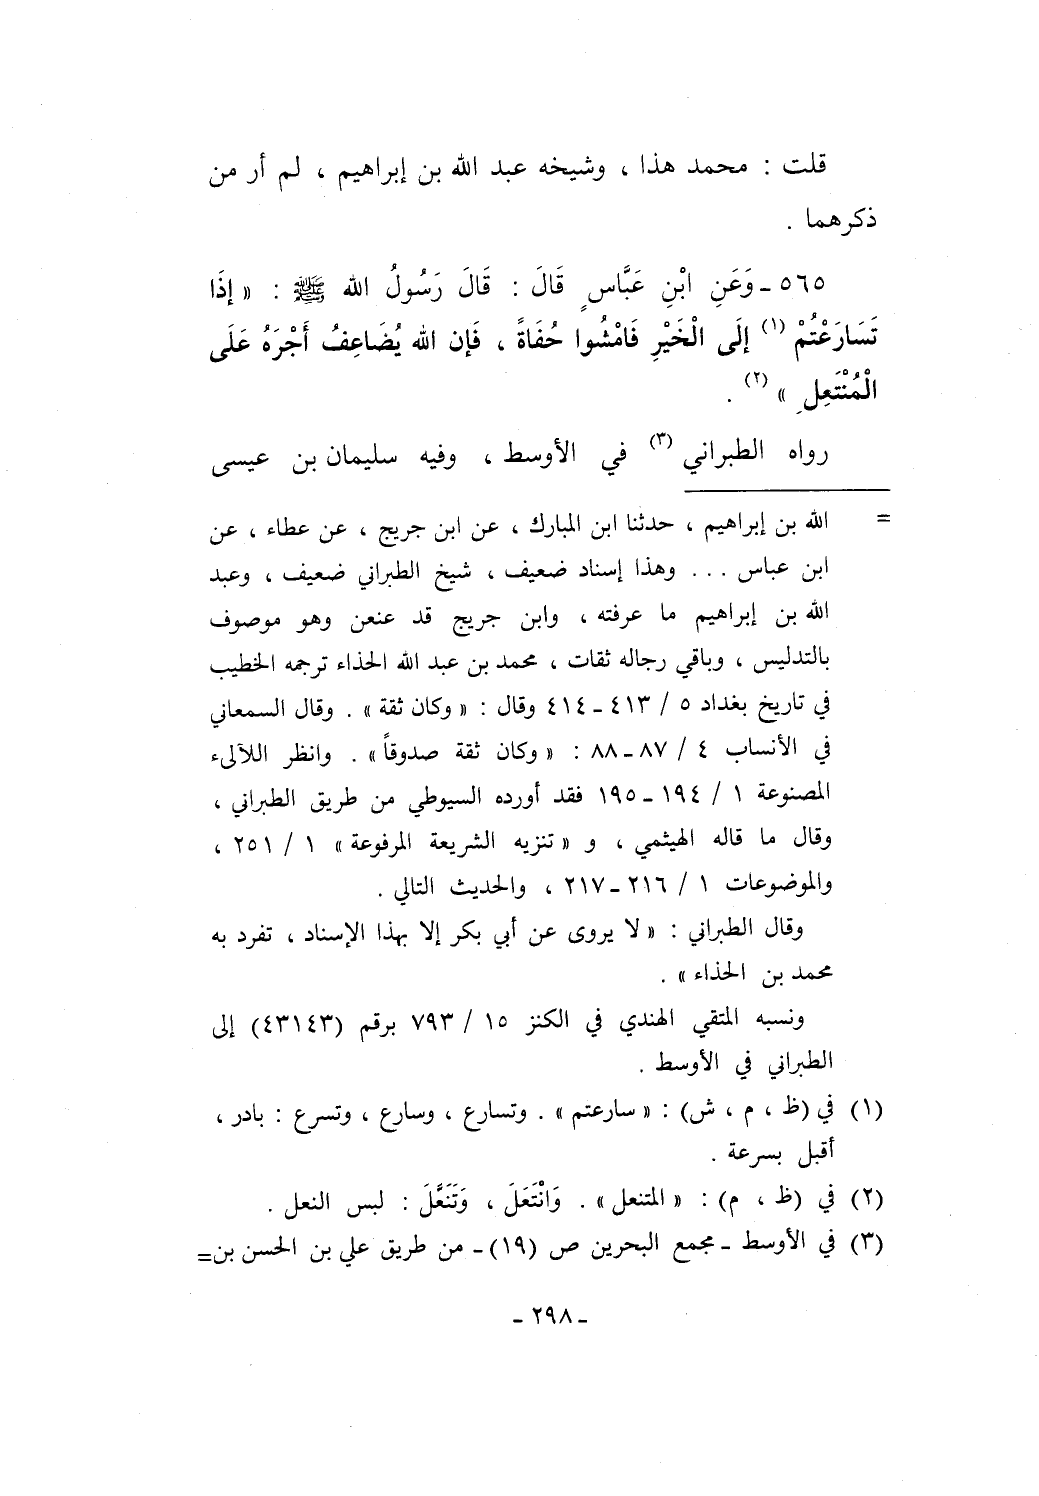 قلت : محمد هذا ، وشيخه عبد الله بن إبراهيم ، لم أر من
ذكرهما .
٥٦٥ ـ وَعَنِ ابْنِ عَبَّاسٍ قَالَ : قَالَ رَسُولُ الله ﷺ : « إِذَا
تَسَارَعْتُمْ (١) إِلَى الْخَيْرِ فَامْشُوا حُفَاةً ، فَإِن الله يُضَاعِفُ أَجْرَهُ عَلَى
الْمُنْتَعِلِ » (٢) .
رواه الطبراني (٣) في الأوسط ، وفيه سليمان بن عيسى
= الله بن إبراهيم ، حدثنا ابن المبارك ، عن ابن جريج ، عن عطاء ، عن
ابن عباس ... وهذا إسناد ضعيف ، شيخ الطبراني ضعيف ، وعبد
الله بن إبراهيم ما عرفته ، وابن جريج قد عنعن وهو موصوف
بالتدليس ، وباقي رجاله ثقات ، محمد بن عبد الله الحذاء ترجمه الخطيب
في تاريخ بغداد ٥ / ٤١٣ ـ ٤١٤ وقال : « وكان ثقة » . وقال السمعاني
في الأنساب ٤ / ٨٧ ـ ٨٨ : « وكان ثقة صدوقاً » . وانظر اللآلىء
المصنوعة ١ / ١٩٤ ـ ١٩٥ فقد أورده السيوطي من طريق الطبراني ،
وقال ما قاله الهيثمي ، و « تنزيه الشريعة المرفوعة » ١ / ٢٥١ ،
والموضوعات ١ / ٢١٦ ـ ٢١٧ ، والحديث التالي .
وقال الطبراني : « لا يروى عن أبي بكر إلا بهذا الإسناد ، تفرد به
محمد بن الحذاء » .
ونسبه المتقي الهندي في الكنز ١٥ / ٧٩٣ برقم (٤٣١٤٣) إلى
الطبراني في الأوسط .
(١) في (ظ ، م ، ش) : « سارعتم » . وتسارع ، وسارع ، وتسرع : بادر ،
أقبل بسرعة .
(٢) في (ظ ، م) : « المتنعل » . وَانْتَعَلَ ، وَتَنَعَّلَ : لبس النعل .
(٣) في الأوسط ـ مجمع البحرين ص (١٩) ـ من طريق علي بن الحسن بن=
ـ ٢٩٨ ـ